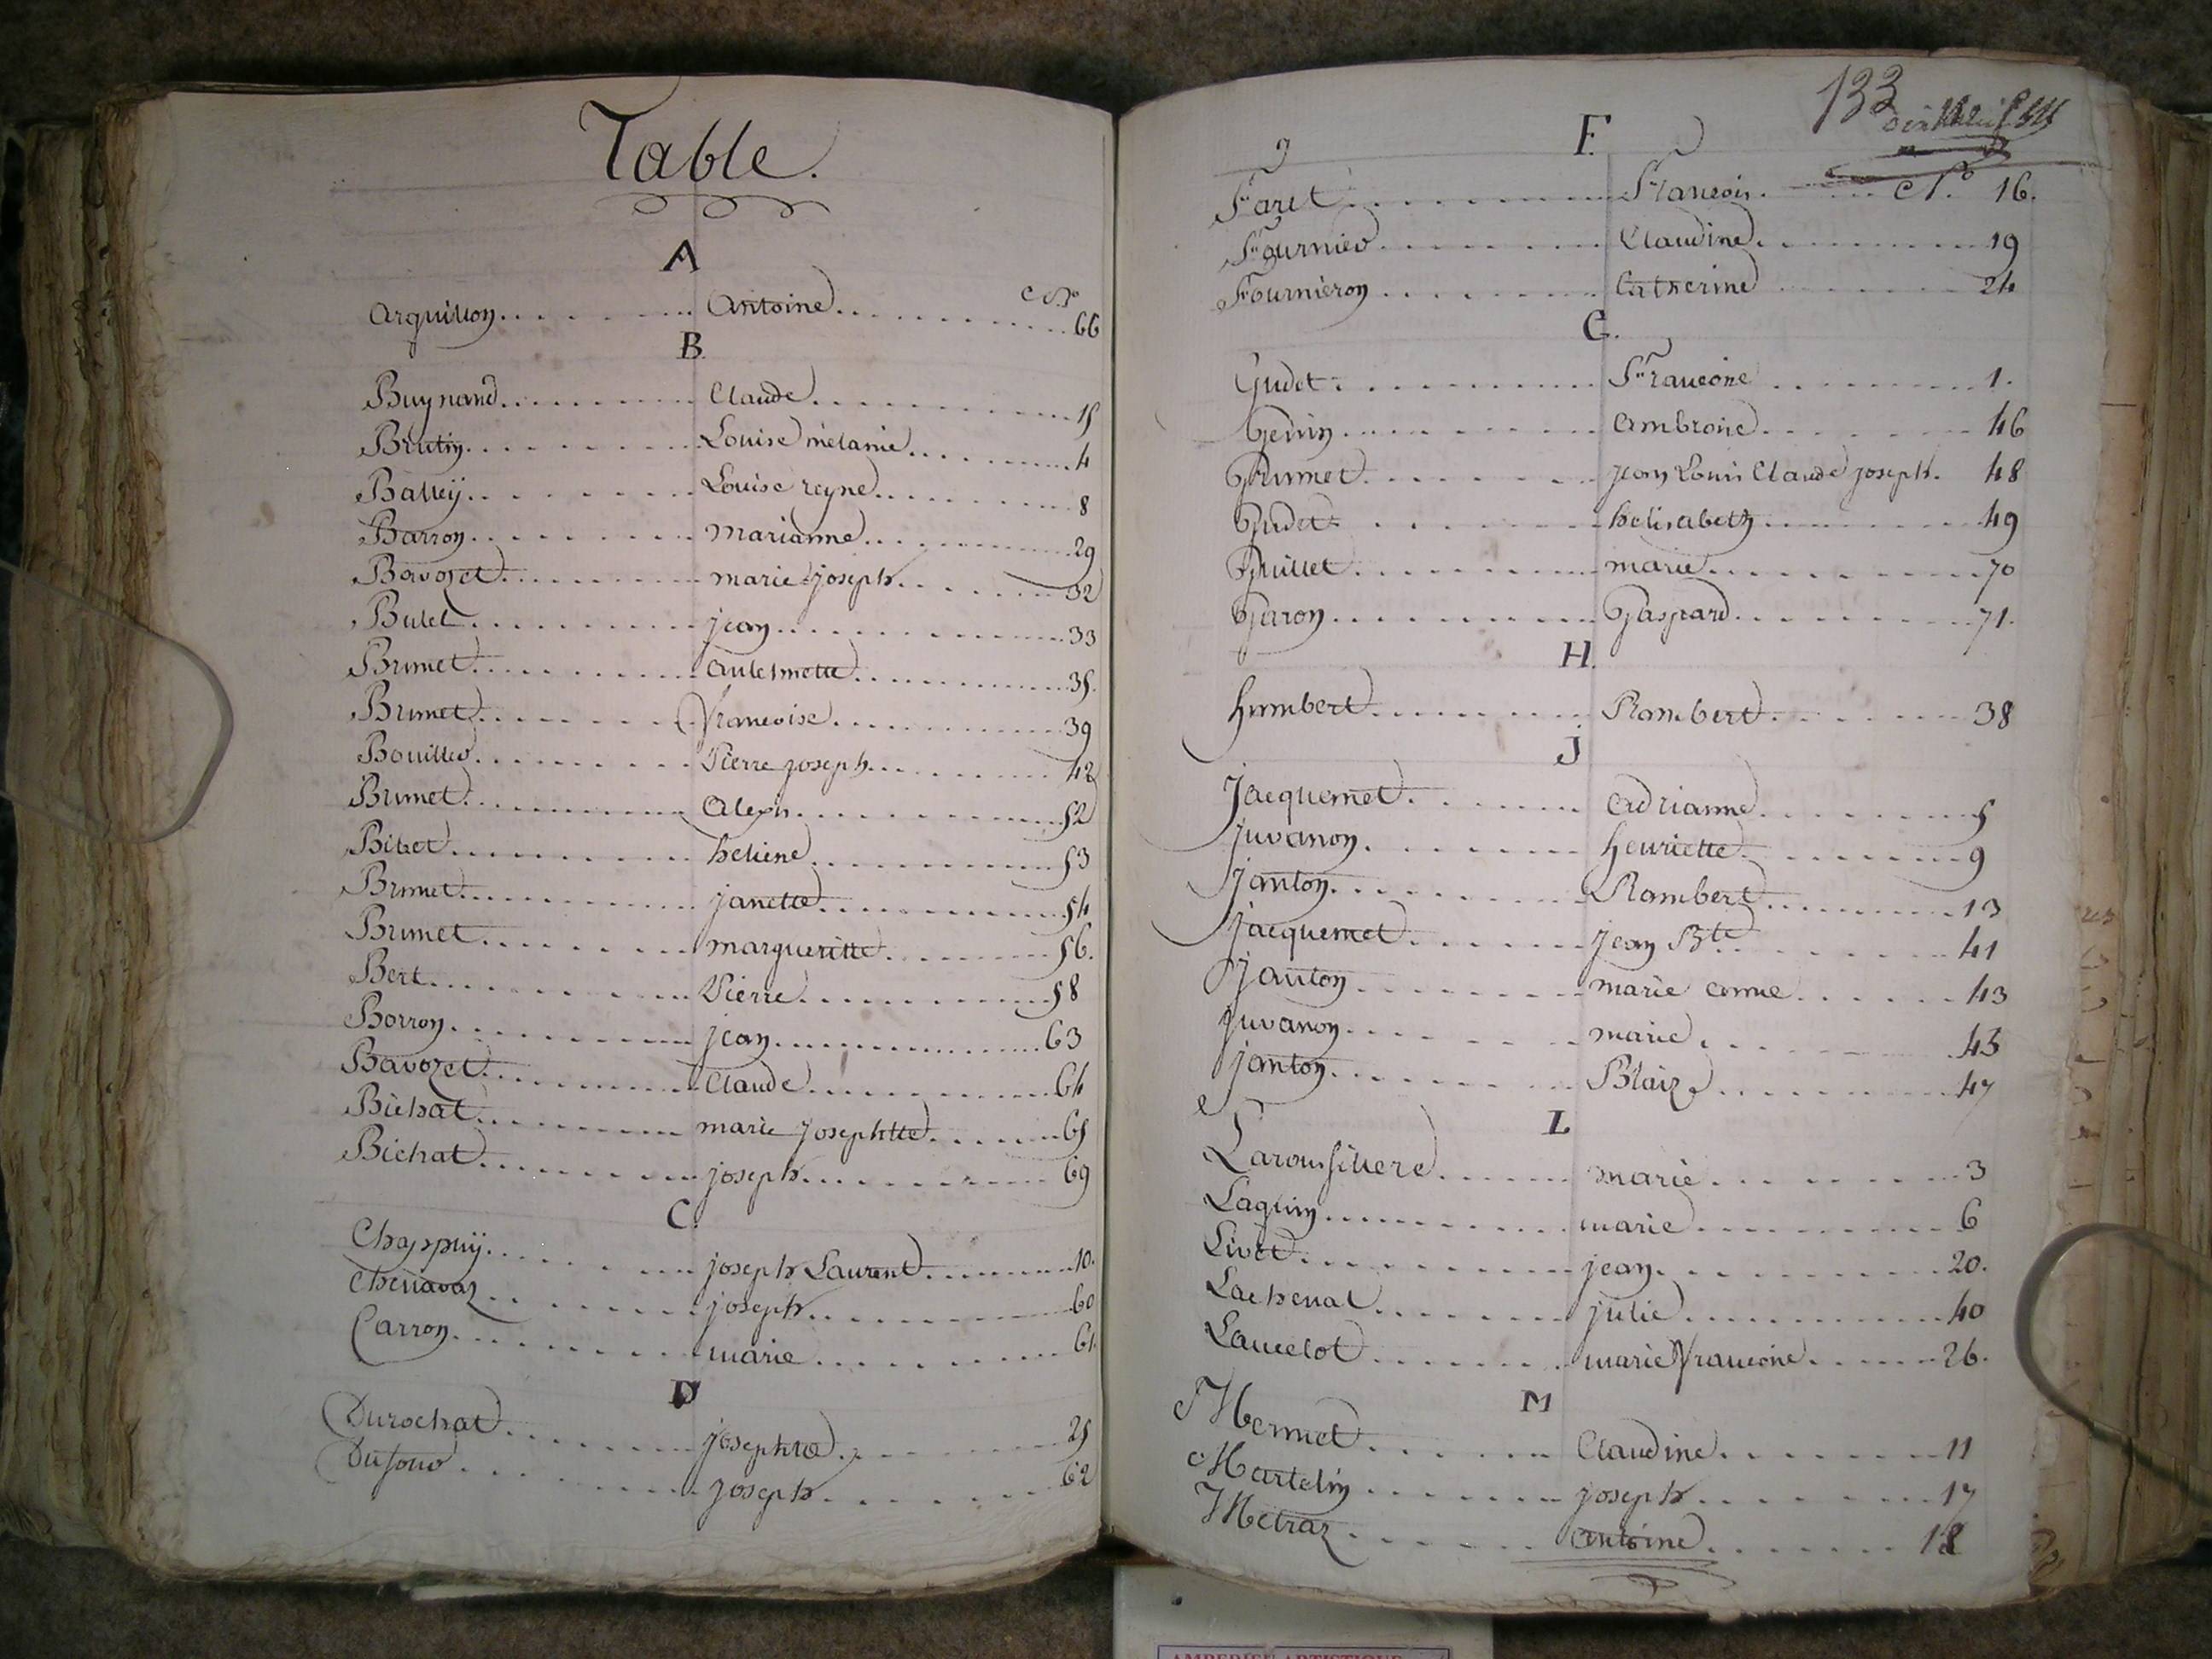 Table.
A
Arquillon Antoine N.º 66
B
Buynand Claude 15
Brutin Louise mélanie 4
Balleÿ Louise reyne 8
Barron Marianne 29
Bavozet marie joseph 32
Butet jean 33
Brunet 35.
Brunet francoise 39
Bouiller Pierre joseph 42
Brunet Alexis 52
Bibet heliene 53
Brunet janette 54
Brunet margueritte 56.
Bert Pierre 58
Borron jean 63
Bavozet Claude 64
Bichat marie josephtte 65
Bichat joseph 69
C.
Chappuÿ joseph Laurent 10.
Chenavaz joseph 60
Carron marie 61
D
Durochat josephte 25
Dufour joseph 62
133
F.
Faret Francois N.º 16.
Fournier Claudine 19
Fournieron Catherine 24
G.
Gudet Francoise 1.
Gevin Ambroise 46
Grumet jean Louis Claude joseph. 48
Gudet helisabeth 49
Guillet marie 70
Garon Gaspard 71.
H.
humbert Rambert 38
J
Jacquemet Adrianne 5
juvanon henriette 9
janton Rambert 13
jacquemet jean Bte 41
janton marie anne 43
juvanon marie 45
janton Blaize 47
L
Laroussiliere marie 3
Laguin marie 6
Livet jean 20.
Lachenal julie 40
Lancelot marie francoise 26.
M
Mermet Claudine 11
Martelin joseph 17
Metraz Antoine 18